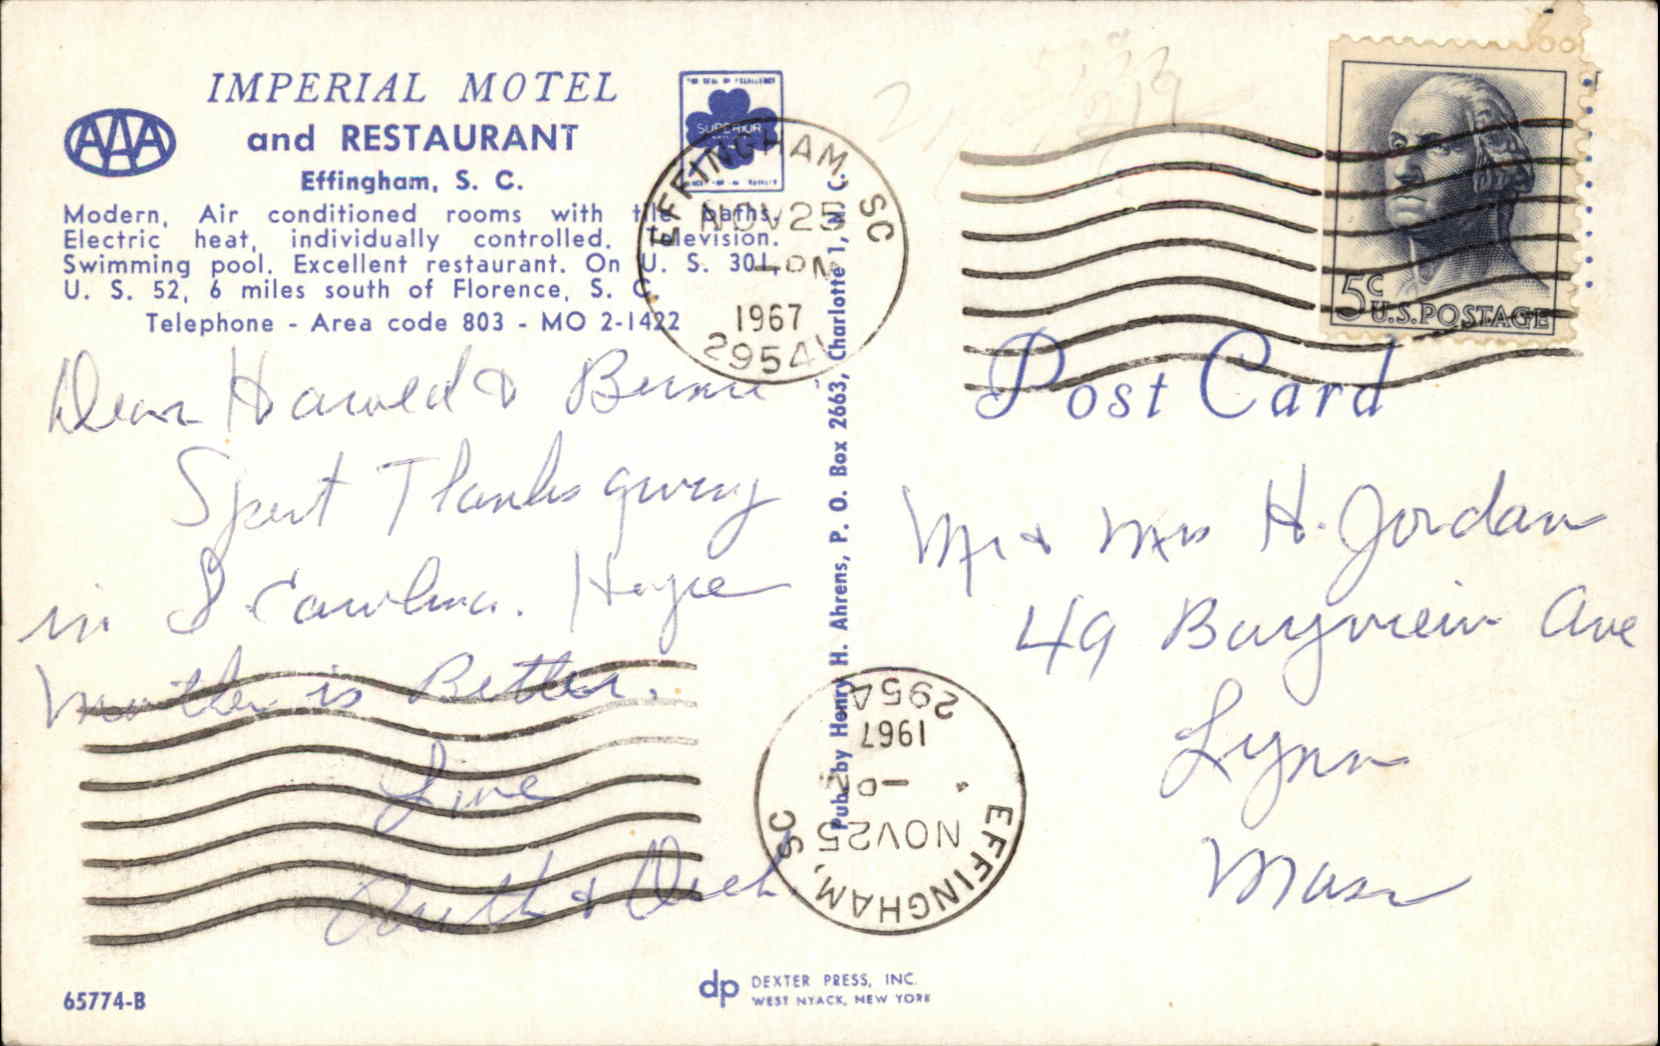 IMPERIAL MOTEL
and RESTAURANT
Effingham, S. C.
AAA
SUPERIOR
Modern, Air conditioned rooms with tile baths.
Electric heat, individually controlled. Television.
Swimming pool. Excellent restaurant. On U. S. 301,
U. S. 52, 6 miles south of Florence, S. C.
Telephone - Area code 803 - MO 2-1422
Dear Harold & Bernie
Spent Thanksgiving
in S. Carolina. Hope
Mother is Better.
Love
Ruth & Dick
65774-B
EFFINGHAM, SC
NOV 25
1967
2954
Pub. by Henry H. Ahrens, P. O. Box 2663, Charlotte 1, N. C.
EFFINGHAM, SC
NOV 25
1967
2954
dp DEXTER PRESS, INC.
WEST NYACK, NEW YORK
5c
U.S. POSTAGE
Post Card
Mr & Mrs H. Jordan
49 Bayview Ave
Lynn
Mass